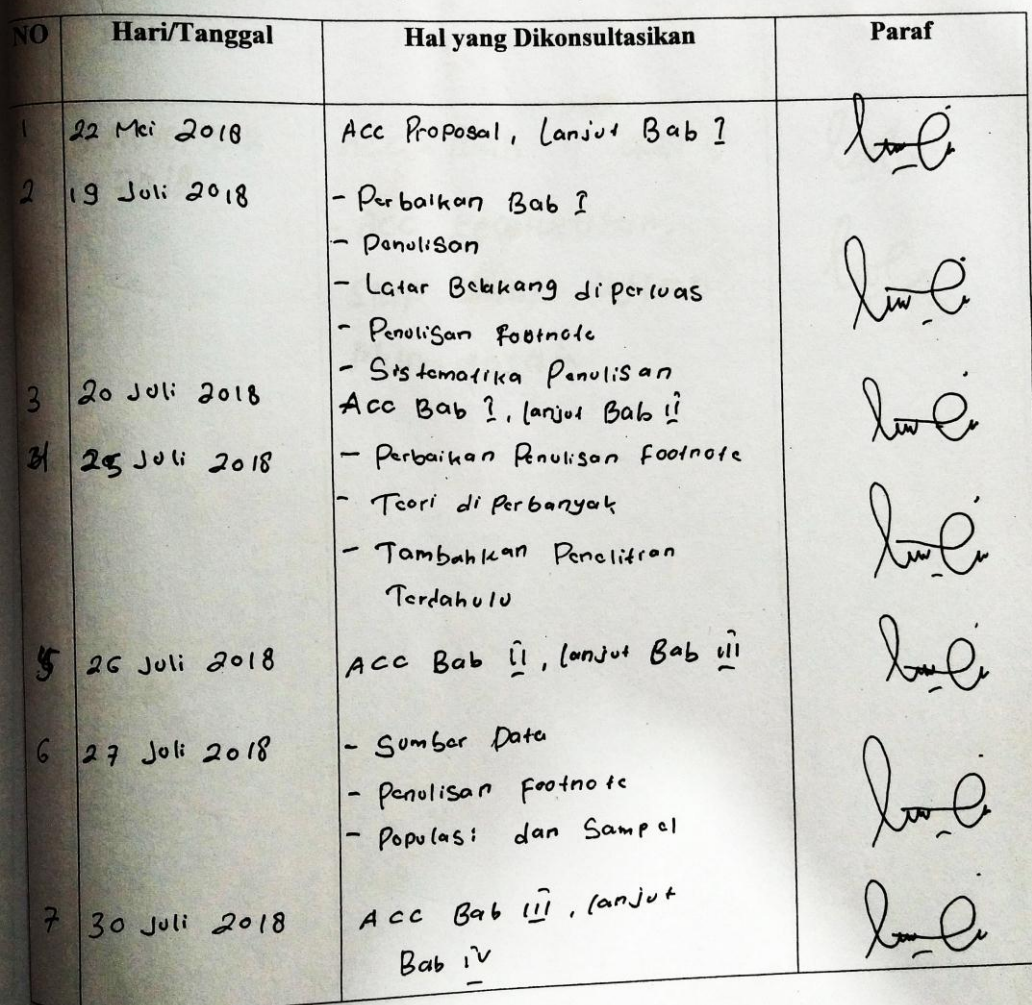 NO Hari/Tanggal Hal yang Dikonsultasikan Paraf
1 22 Mei 2018 Acc Proposal, Lanjut Bab I
2 19 Juli 2018 - Perbaikan Bab I
- Penulisan
- Latar Belakang diperluas
- Penulisan Footnote
- Sistematika Penulisan
3 20 Juli 2018 Acc Bab I, lanjut Bab II
4 25 Juli 2018 - Perbaikan Penulisan Footnote
- Teori di Perbanyak
- Tambahkan Penelitian
Terdahulu
5 26 Juli 2018 ACC Bab II, lanjut Bab III
6 27 Juli 2018 - Sumber Data
- Penulisan Footnote
- Populasi dan Sampel
7 30 Juli 2018 Acc Bab III, lanjut
Bab IV